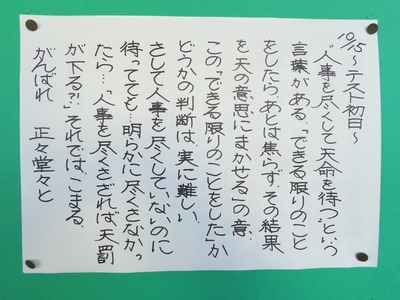 10/15 ～テスト初日～
“人事を尽くして天命を待つ”という
言葉がある。「できる限りのこと
をしたら、あとは焦らず、その結果
を天の意思にまかせる」の意。
この「できる限りのことをした」か
どうかの判断は、実に難しい。
さして人事を尽くしていないのに
待ってても…明らかに尽くさなかっ
たら…「人事を尽くさざれば天罰
が下る?!」それでは、こまる。
がんばれ 正々堂々と